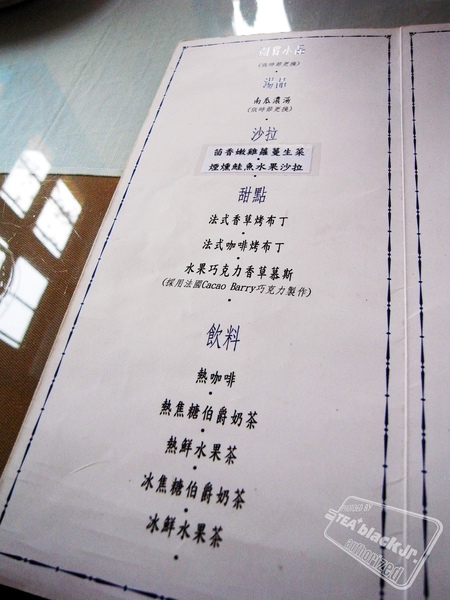 開胃小品
(依時節更換)
湯品
南瓜濃湯
(依時節更換)
沙拉
茴香嫩雞蘿蔓生菜
煙燻鮭魚水果沙拉
甜點
法式香草烤布丁
法式咖啡烤布丁
水果巧克力香草慕斯
(採用法國Cacao Barry巧克力製作)
飲料
熱咖啡
熱焦糖伯爵奶茶
熱鮮水果茶
冰焦糖伯爵奶茶
冰鮮水果茶
POSTED BY
TEA
blackJr.
authorized